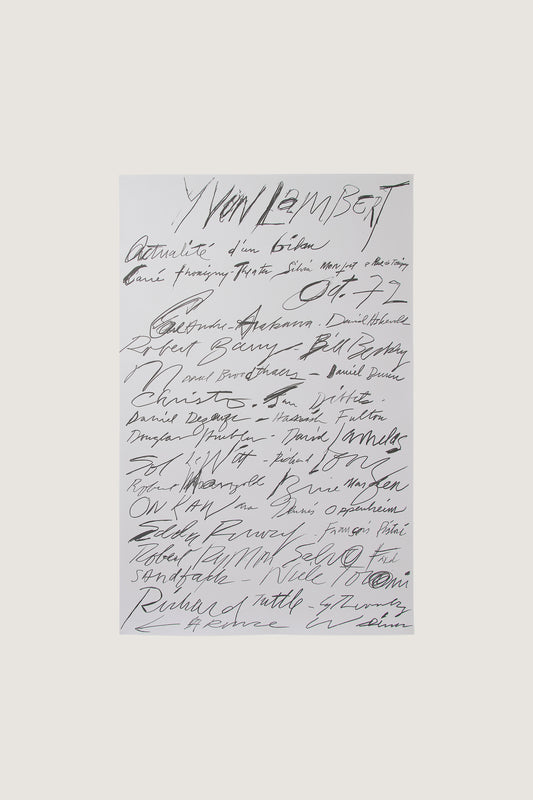 YVON LAMBERT
Actualité d'un bilan
Carré Thorigny - Theatre Silvia Monfort
Oct. 72
Carl Andre - Arakawa - David Askevold
Robert Barry - Bill Beckley
Marcel Broodthaers - Daniel Buren
Christo. Jan Dibbets -
Daniel Dezeuze - Hamish Fulton
Douglas Huebler - David Lamelas
Sol LeWitt - Richard Long
Robert Mangold Brice Marden
ON KAWARA Dennis Oppenheim
Edda Renouf - François Ristori
Robert Ryman Salvo Fred
SANDBACK - Niele TORONI
Richard Tuttle - Cy Twombly
LAWRENCE Weiner